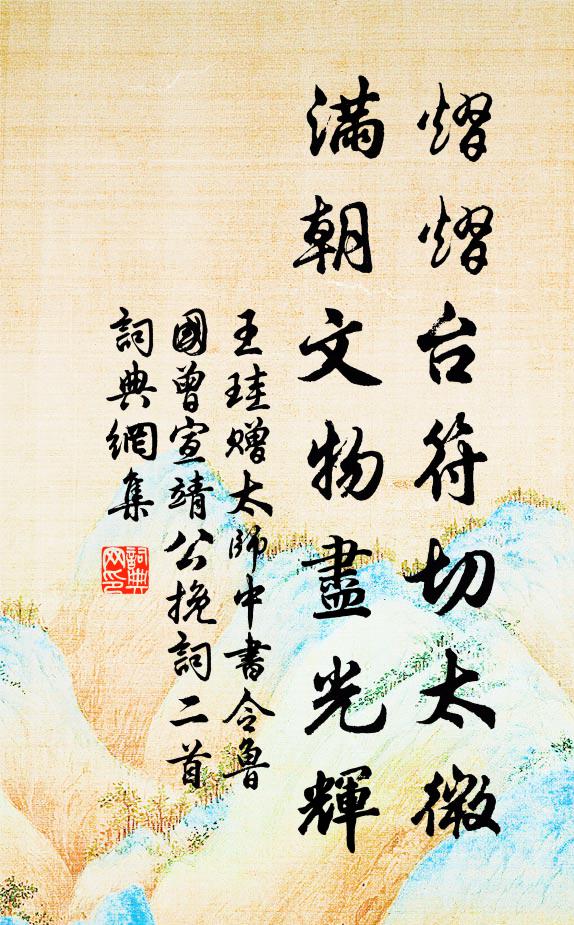 熠熠台符切太微
滿朝文物盡光輝
王珪贈太師中書令魯
國曾宣靖公挽詞二首
詞典網集
詞典
网印